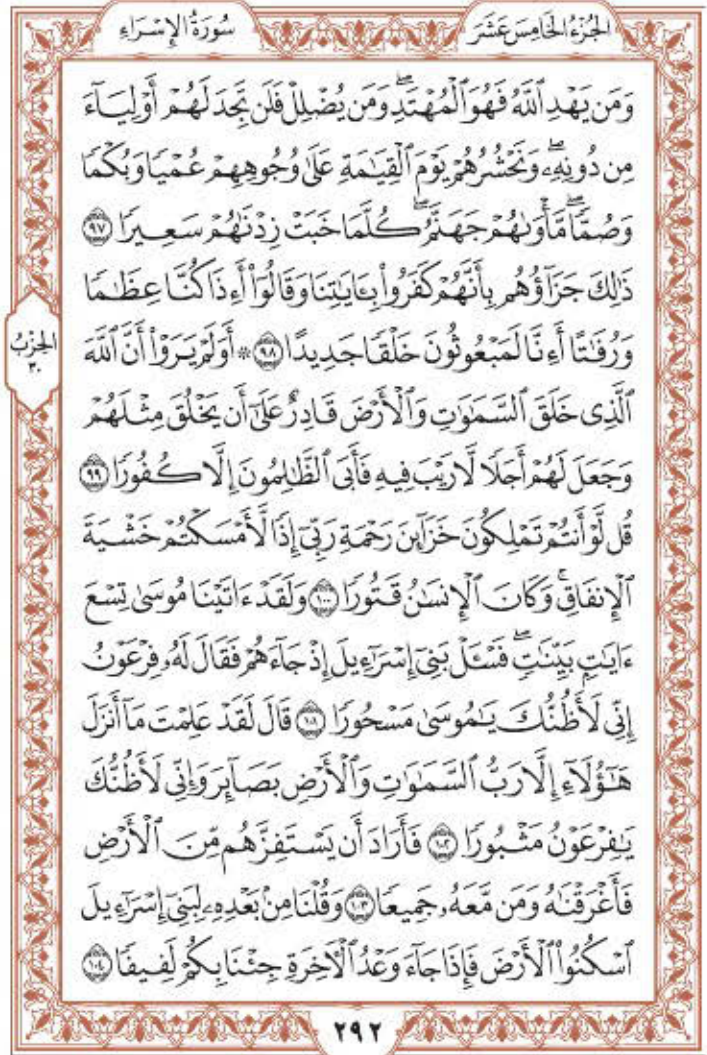 الجُزْءُ الخَامِسَ عَشَرَ
سُورَةُ الإِسْرَاءِ
وَمَن يَهْدِ ٱللَّهُ فَهُوَ ٱلْمُهْتَدِۖ وَمَن يُضْلِلْ فَلَن تَجِدَ لَهُمْ أَوْلِيَآءَ
مِن دُونِهِۦۖ وَنَحْشُرُهُمْ يَوْمَ ٱلْقِيَٰمَةِ عَلَىٰ وُجُوهِهِمْ عُمْيًا وَبُكْمًا
وَصُمًّاۖ مَّأْوَىٰهُمْ جَهَنَّمُۖ كُلَّمَا خَبَتْ زِدْنَٰهُمْ سَعِيرًا ٩٧
ذَٰلِكَ جَزَآؤُهُم بِأَنَّهُمْ كَفَرُوا۟ بِـَٔايَٰتِنَا وَقَالُوٓا۟ أَءِذَا كُنَّا عِظَٰمًا
وَرُفَٰتًا أَءِنَّا لَمَبْعُوثُونَ خَلْقًا جَدِيدًا ٩٨ ۞ أَوَلَمْ يَرَوْا۟ أَنَّ ٱللَّهَ
الحِزْبُ
٣٠
ٱلَّذِى خَلَقَ ٱلسَّمَٰوَٰتِ وَٱلْأَرْضَ قَادِرٌ عَلَىٰٓ أَن يَخْلُقَ مِثْلَهُمْ
وَجَعَلَ لَهُمْ أَجَلًا لَّا رَيْبَ فِيهِ فَأَبَى ٱلظَّٰلِمُونَ إِلَّا كُفُورًا ٩٩
قُل لَّوْ أَنتُمْ تَمْلِكُونَ خَزَآئِنَ رَحْمَةِ رَبِّىٓ إِذًا لَّأَمْسَكْتُمْ خَشْيَةَ
ٱلْإِنفَاقِۚ وَكَانَ ٱلْإِنسَٰنُ قَتُورًا ١٠٠ وَلَقَدْ ءَاتَيْنَا مُوسَىٰ تِسْعَ
ءَايَٰتٍۭ بَيِّنَٰتٍۖ فَسْـَٔلْ بَنِىٓ إِسْرَٰٓءِيلَ إِذْ جَآءَهُمْ فَقَالَ لَهُۥ فِرْعَوْنُ
إِنِّى لَأَظُنُّكَ يَٰمُوسَىٰ مَسْحُورًا ١٠١ قَالَ لَقَدْ عَلِمْتَ مَآ أَنزَلَ
هَٰٓؤُلَآءِ إِلَّا رَبُّ ٱلسَّمَٰوَٰتِ وَٱلْأَرْضِ بَصَآئِرَ وَإِنِّى لَأَظُنُّكَ
يَٰفِرْعَوْنُ مَثْبُورًا ١٠٢ فَأَرَادَ أَن يَسْتَفِزَّهُم مِّنَ ٱلْأَرْضِ
فَأَغْرَقْنَٰهُ وَمَن مَّعَهُۥ جَمِيعًا ١٠٣ وَقُلْنَا مِنۢ بَعْدِهِۦ لِبَنِىٓ إِسْرَٰٓءِيلَ
ٱسْكُنُوا۟ ٱلْأَرْضَ فَإِذَا جَآءَ وَعْدُ ٱلْءَاخِرَةِ جِئْنَا بِكُمْ لَفِيفًا ١٠٤
٢٩٢